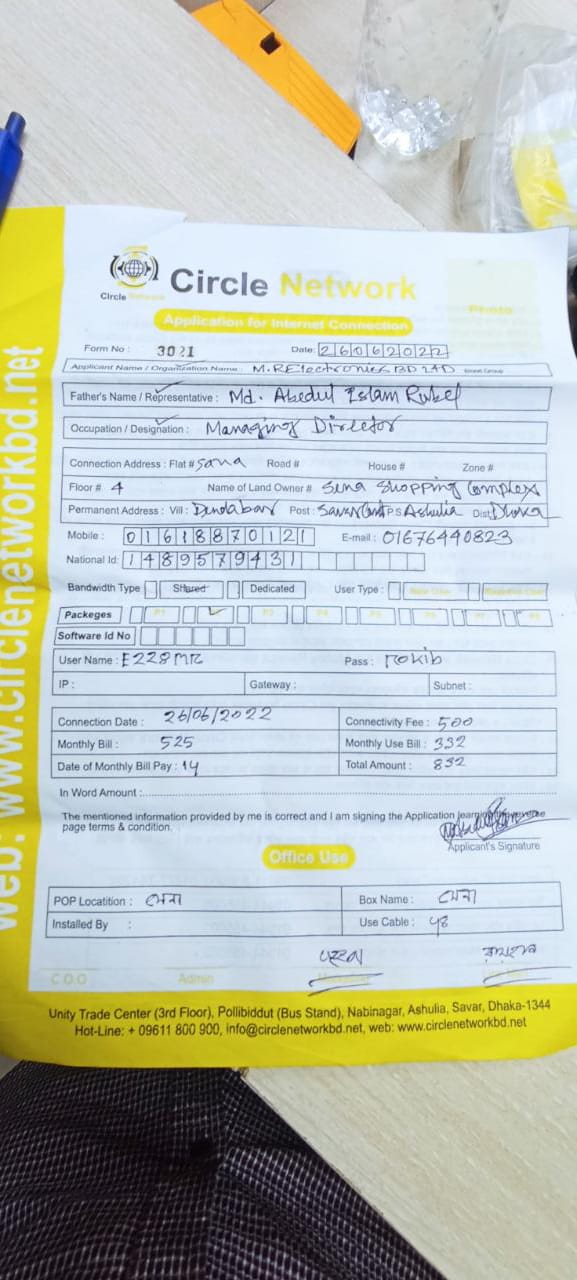 Circle Network
Circle Network
Application for Internet Connection
Photo
Form No : 3021 Date: 26062022
Applicant Name / Organization Name : M.R Electronics BD LTD
Father's Name / Representative : Md. Abedul Islam Rubel
Occupation / Designation : Managing Director
Connection Address : Flat # Sana Road # House # Zone #
Floor # 4 Name of Land Owner # Sena Shopping Complex
Permanent Address : Vill : Dendabar Post : Savar Cantt P.S Ashulia Dist Dhaka
Mobile : 01618870121 E-mail : 01676440823
National Id: 1489579431
Bandwidth Type Shared Dedicated User Type :
Packeges P1 P3 P4
Software Id No
User Name : E228MR Pass : rokib
IP : Gateway : Subnet :
Connection Date : 26/06/2022 Connectivity Fee : 500
Monthly Bill : 525 Monthly Use Bill : 332
Date of Monthly Bill Pay : 14 Total Amount : 832
In Word Amount :
The mentioned information provided by me is correct and I am signing the Application
page terms & condition.
Applicant's Signature
Office Use
POP Locatition : সেনা Box Name : সেনা
Installed By : Use Cable : ৭৪
C O O Admin
Unity Trade Center (3rd Floor), Pollibiddut (Bus Stand), Nabinagar, Ashulia, Savar, Dhaka-1344
Hot-Line: + 09611 800 900, info@circlenetworkbd.net, web: www.circlenetworkbd.net
web: www.circlenetworkbd.net